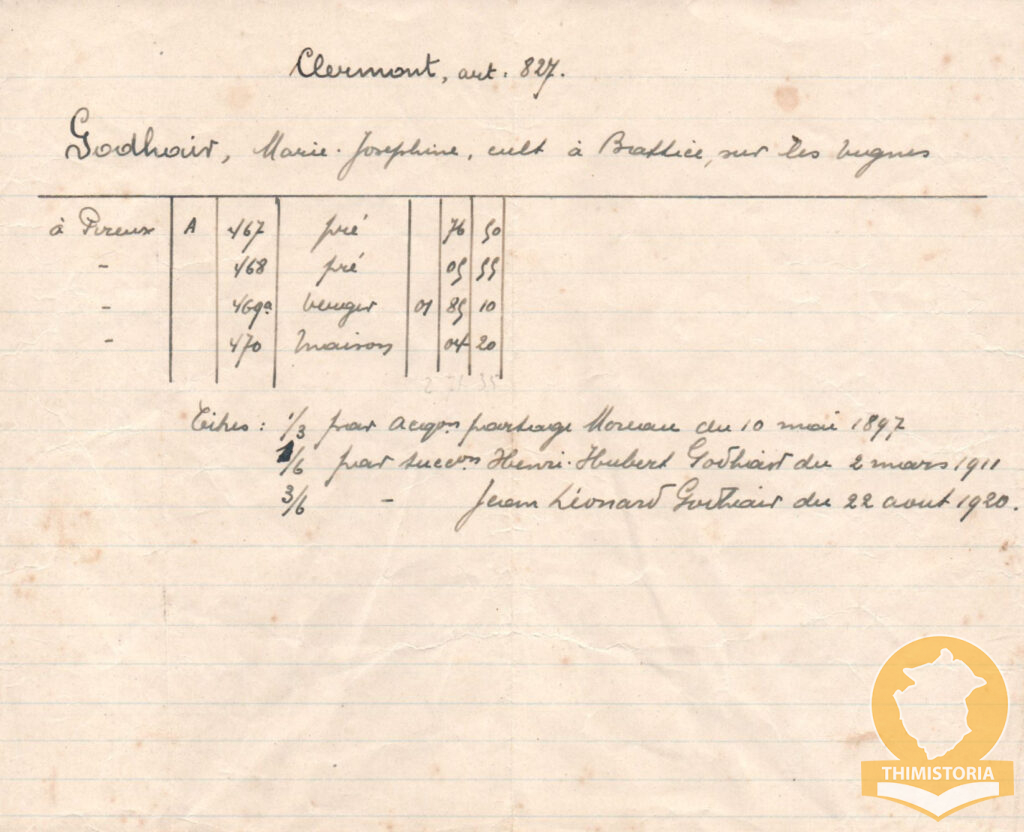 Clermont, art. 827.
Godhair, Marie-Joséphine, cult à Battice, sur les vugnes
à Pireux A 467 pré 76 50
- 468 pré 05 55
- 469a verger 01 85 10
- 470 maison 04 20
2 71 35
Titres : 1/3 par acqon partage Moreau du 10 mai 1897
1/6 par succon Henri-Hubert Godhair du 2 mars 1911
3/6 - Jean Léonard Godhair du 22 aout 1920.
THIMISTORIA